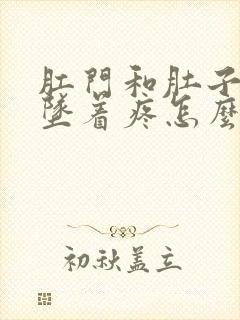 肛門和肚子
墜着疼怎麼
初秋盖立